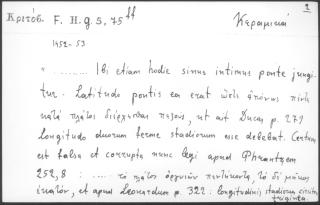 Κριτόβ. F. H. g. 5, 75 ff
2
Κεραμικά
1452-53
".......... Ibi etiam hodie sinus intimus ponte jungi-
tur. Latitudo pontis ea erat ὥστε πέντε
κατὰ πλάτος διέρχεσθαι πεζούς, ut ait Ducas p. 279
longitudo duorum ferme stadiorum esse debebat. Certum
est falsa et corrupta nunc legi apud Phrantzem
252,8 : ..... τὸ πλάτος ὀργυιῶν πεντήκοντα, τὸ δὲ μῆκος
ἑκατόν, et apud Leonardum p. 322 : longitudinis stadiorum circiter
triginta.